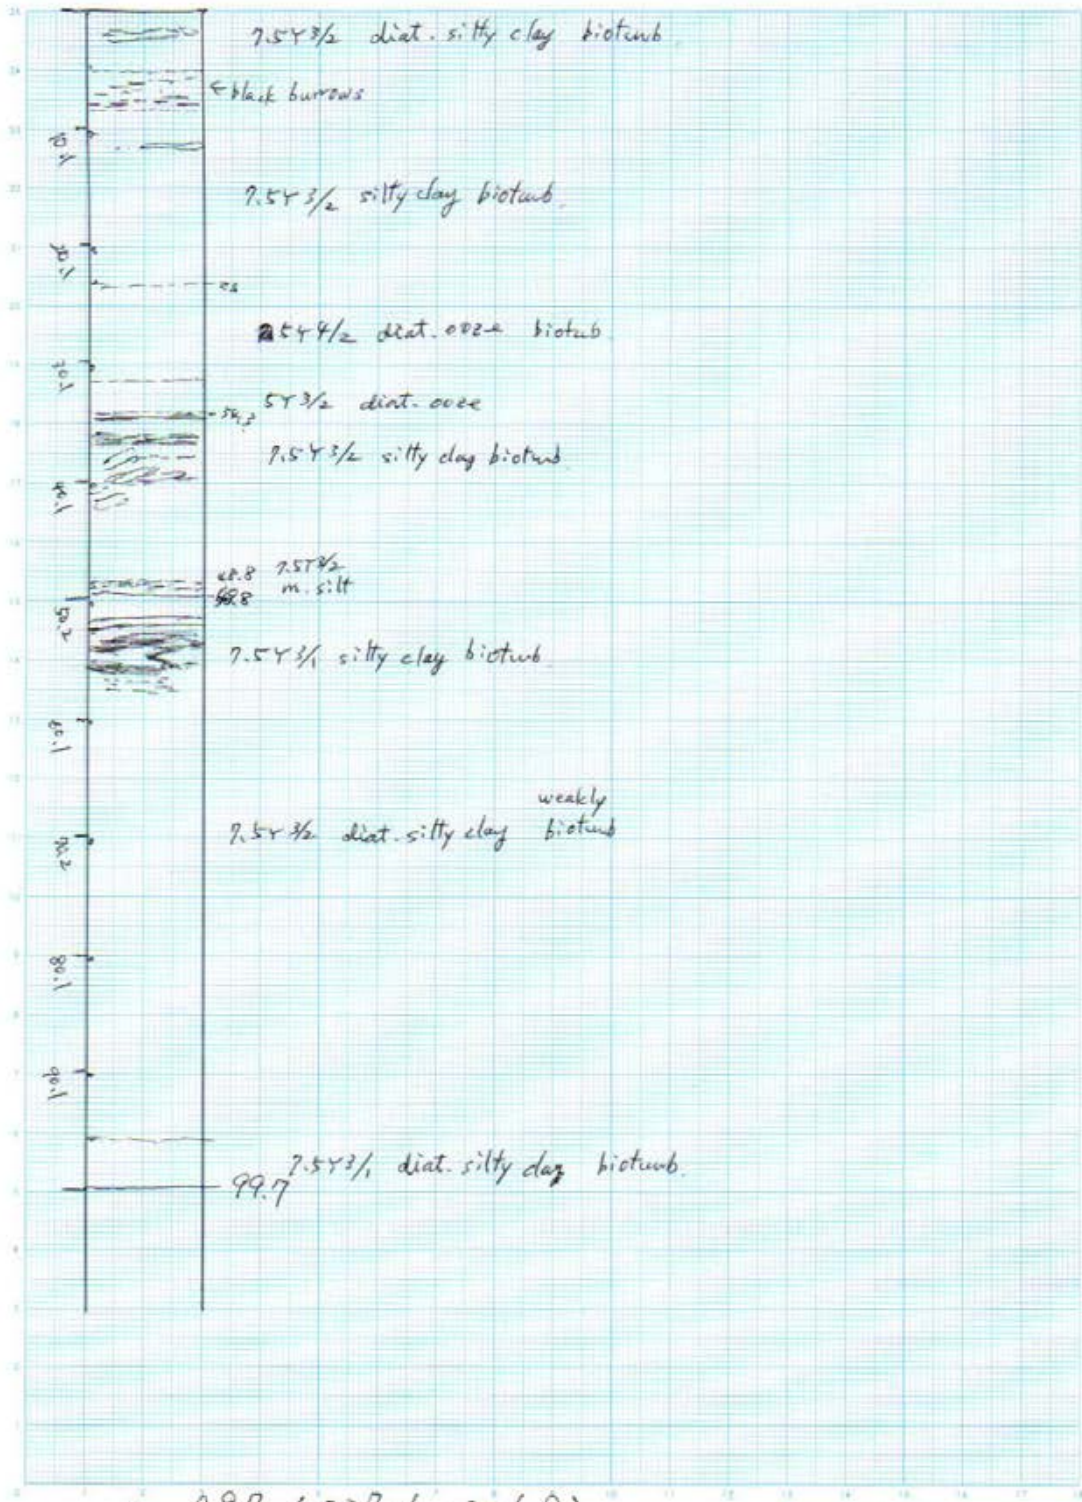 7.5Y3/2 diat. silty clay bioturb.
← black burrows
10.1
7.5Y3/2 silty clay bioturb.
20.1
5Y4/2 diat. ooze bioturb
30.1
5Y3/2 diat. ooze
7.5Y3/2 silty clay bioturb
40.1
48.8 7.5Y3/2
m. silt
50.2
7.5Y3/1 silty clay bioturb
60.1
weakly
7.5Y3/2 diat. silty clay bioturb
70.2
80.1
90.1
7.5Y3/1 diat. silty clay bioturb.
99.7